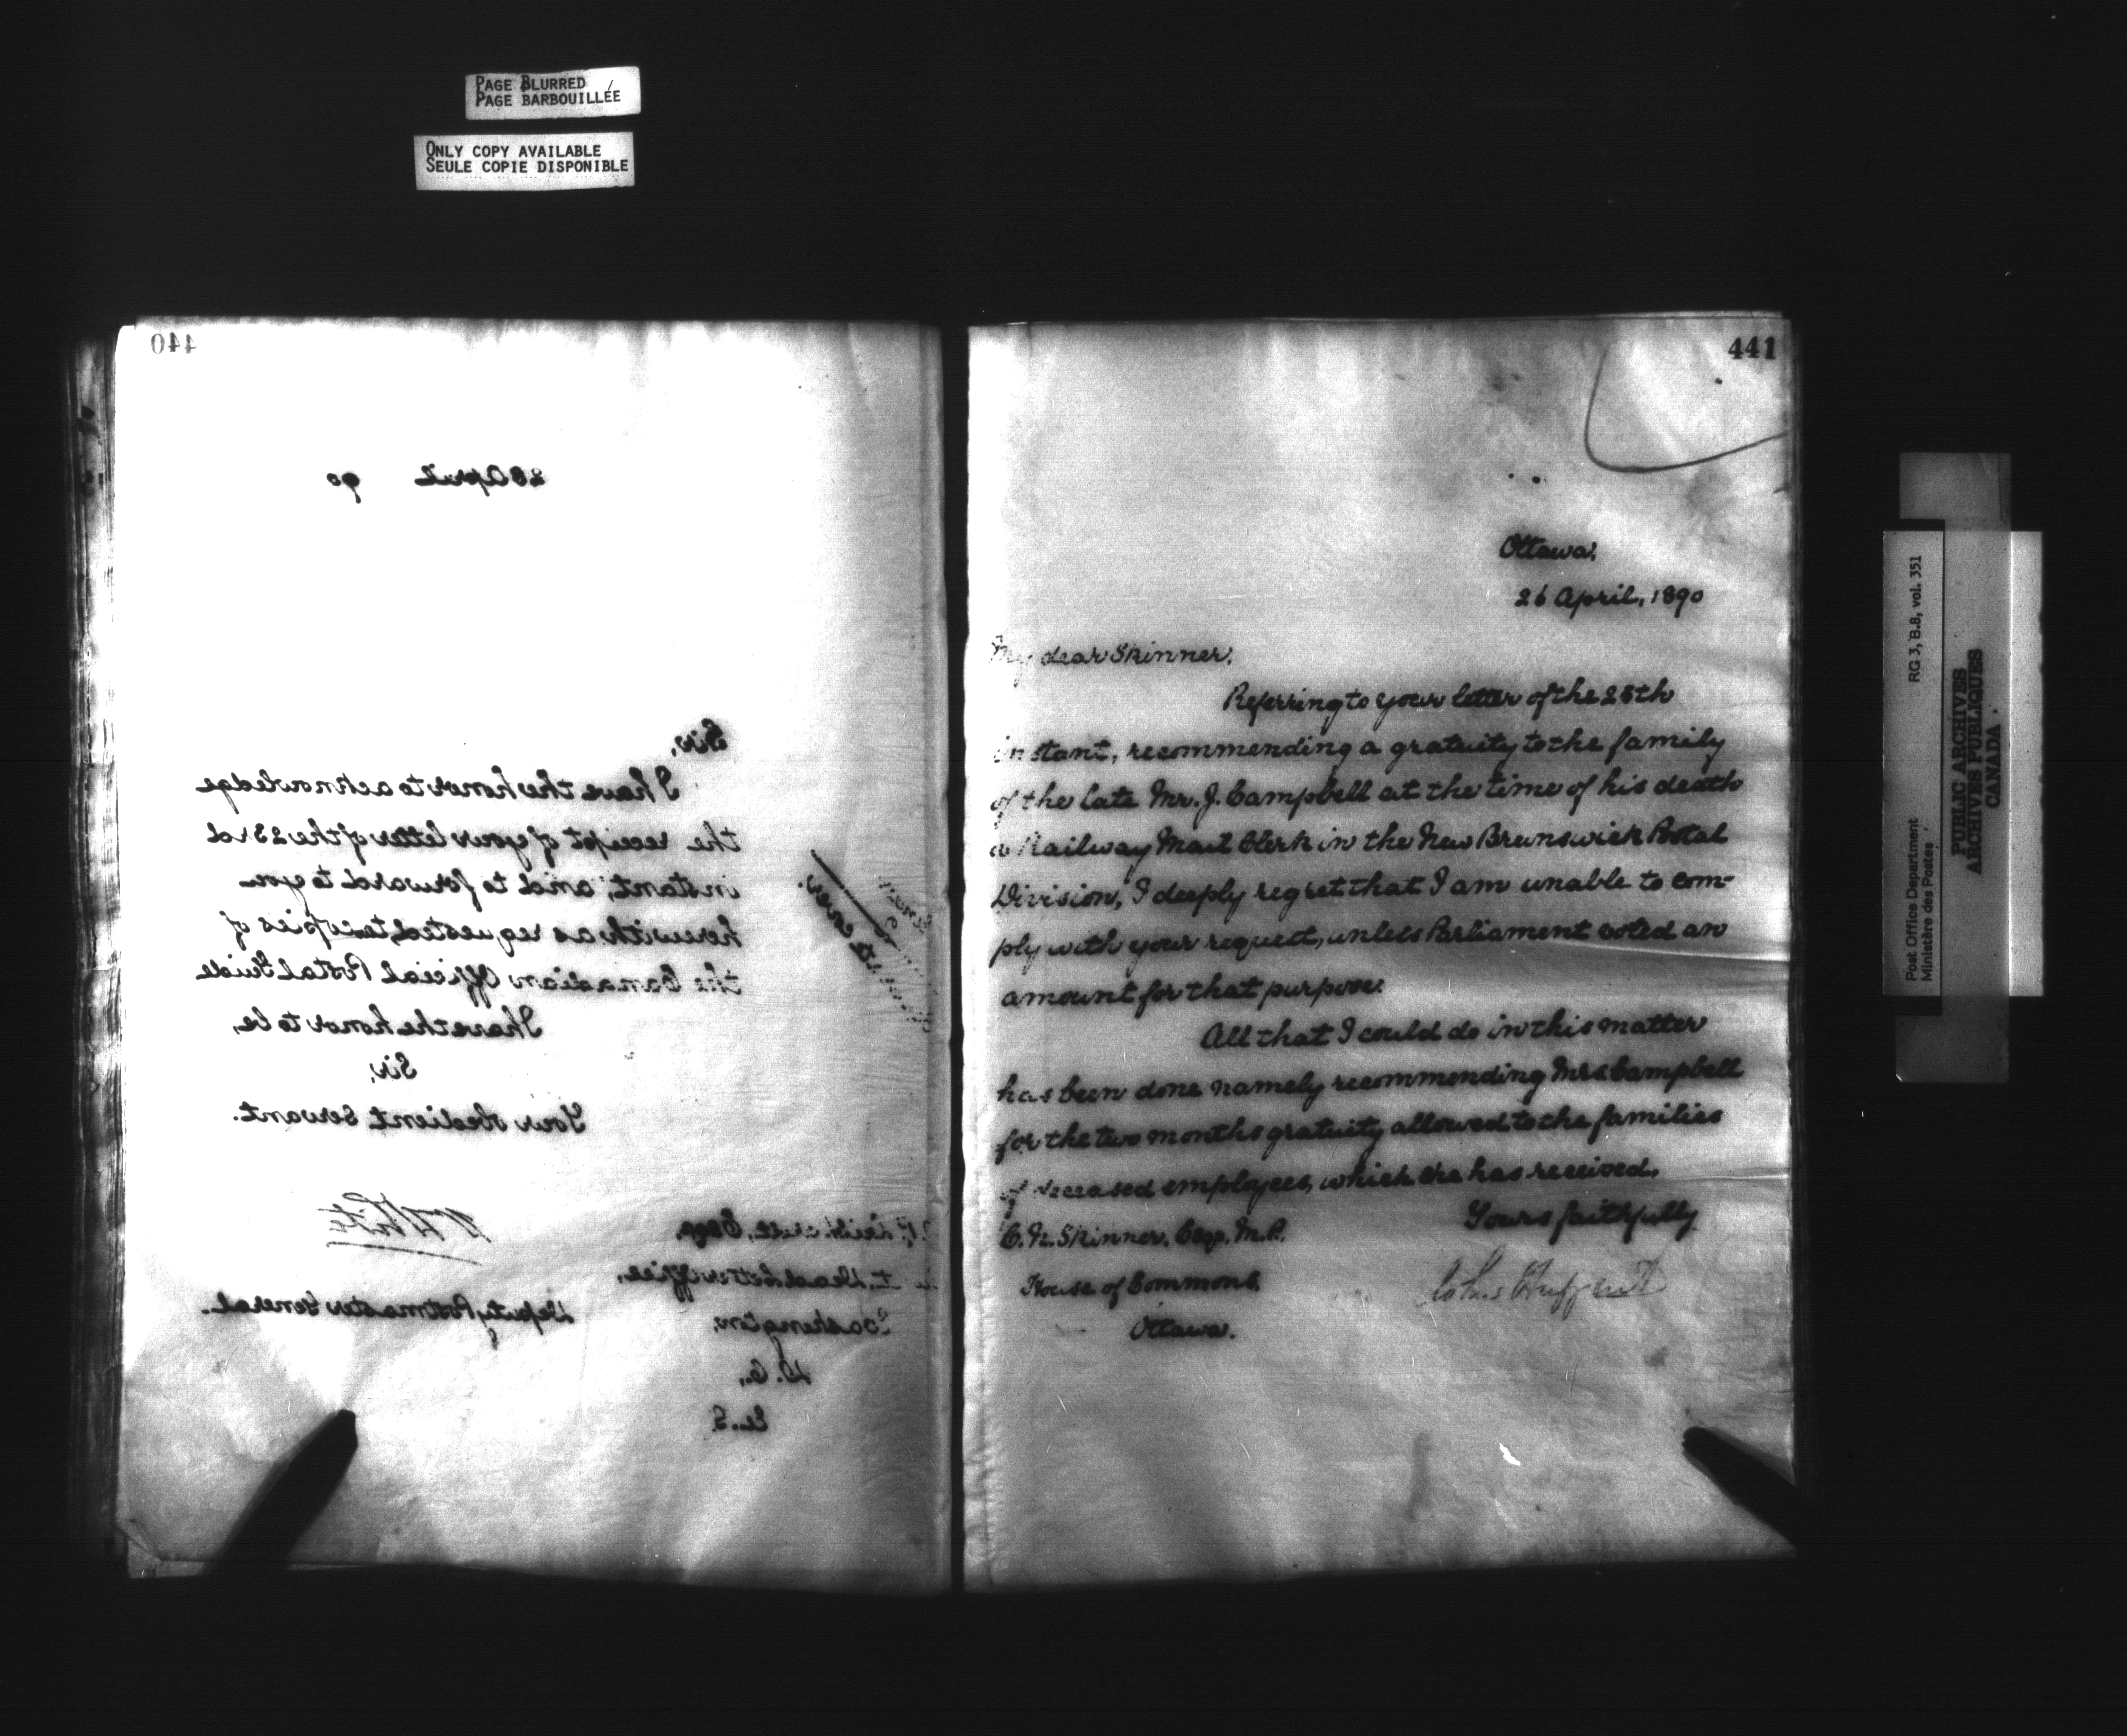 PAGE BLURRED
PAGE BARBOUILLÉE
ONLY COPY AVAILABLE
SEULE COPIE DISPONIBLE
440
26 April 90
Sir,
I have the honor to acknowledge
the receipt of your letter of the 23rd
instant, and to forward to you
herewith as requested, copies of
the Canadian Official Postal Guide
I have the honor to be,
Sir,
Your obedient Servant.
W White
Deputy Postmaster General.
Esq.
Dead Letter Office,
Washington,
D. C.,
U. S.
441
Ottawa,
26 April, 1890
My dear Skinner,
Referring to your letter of the 25th
instant, recommending a gratuity to the family
of the late Mr. J. Campbell at the time of his death
a Railway Mail Clerk in the New Brunswick Postal
Division, I deeply regret that I am unable to com-
ply with your request, unless Parliament voted an
amount for that purpose.
All that I could do in this matter
has been done namely recommending Mrs Campbell
for the two months gratuity allowed to the families
of deceased employees, which she has received.
Yours faithfully
John Haggart
C. N. Skinner, Esqr. M.P.
House of Commons,
Ottawa.
RG 3, B.8, vol. 351
Post Office Department
Ministère des Postes
PUBLIC ARCHIVES
ARCHIVES PUBLIQUES
CANADA